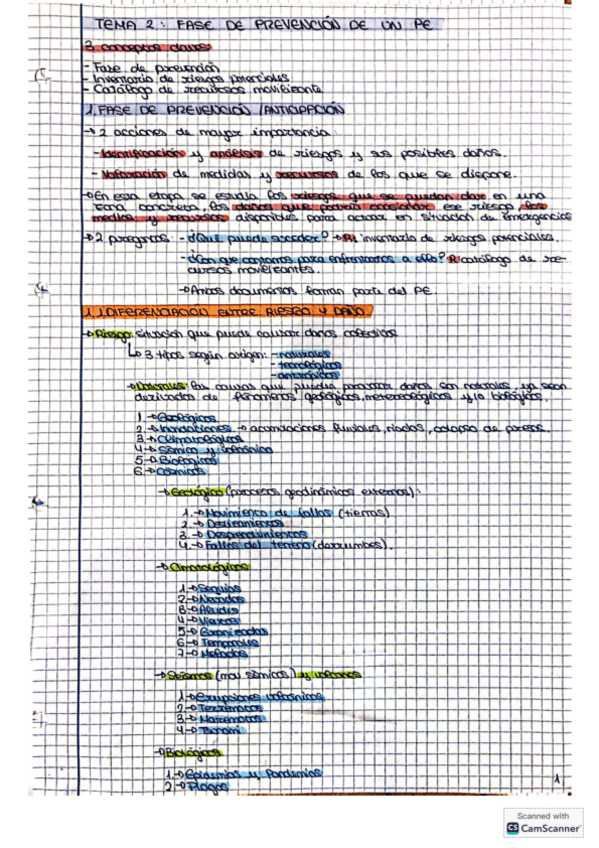 TEMA 2: FASE DE PREVENCIÓN DE UN PE
3 conceptos claves:
- Fase de prevención
- Inventario de riesgos potenciales
- Catálogo de recursos movilizante
1. FASE DE PREVENCIÓN /ANTICIPACIÓN
→ 2 acciones de mayor importancia:
- Identificación y análisis de riesgos y sus posibles daños.
- Valoración de medidas y recursos de los que se dispone.
→ En esta etapa se estudia los riesgos que se puedan dar en una
zona concreta, los daños que podría ocasionar ese riesgo, los
medios y recursos disponibles para actuar en situación de emergencias
→ 2 preguntas: - ¿Qué puede suceder? → R/ inventario de riesgos potenciales.
- ¿Con que contamos para enfrentarnos a ello? R/ catálogo de re-
cursos movilizantes.
→ Ambos documentos forman parte del PE.
1.1 DIFERENCIACIÓN ENTRE RIESGO Y DAÑO.
→ Riesgo: situación que puede causar daños colectivos
↳ 3 tipos según origen: - naturales
- tecnológicos
- antrópicos
→ Naturales: las causas que pueden provocar daños son naturales, ya sean
derivados de fenómenos geológicos, metereológicos y/o biológicos.
1 → Geológicos
2 → Inundaciones → acumulaciones fluviales, riadas, colapso de presas.
3 → Climatológicos
4 → Sísmico y volcánico
5 → Biológicos
6 → Cósmicos
→ Geológico (procesos geodinámicos externos):
1. → Movimiento de fallas (tierras)
2. → Deslizamientos
3. → Desprendimientos
4. → Fallas del terreno (derrumbes).
→ Climatológicos
1 → Sequías
2 → Nevadas
3 → Aludes
4 → Vientos
5 → Granizadas
6 → Temporales
7 → Heladas
→ Seísmos (mov sísmicos) y volcanes
1 → Erupciones volcánicas
2 → Terremotos
3 → Maremotos
4 → Tsunami
→ Biológicos
1. → Epidemias y Pandemias
2 → Plagas
1
Scanned with
CS CamScanner